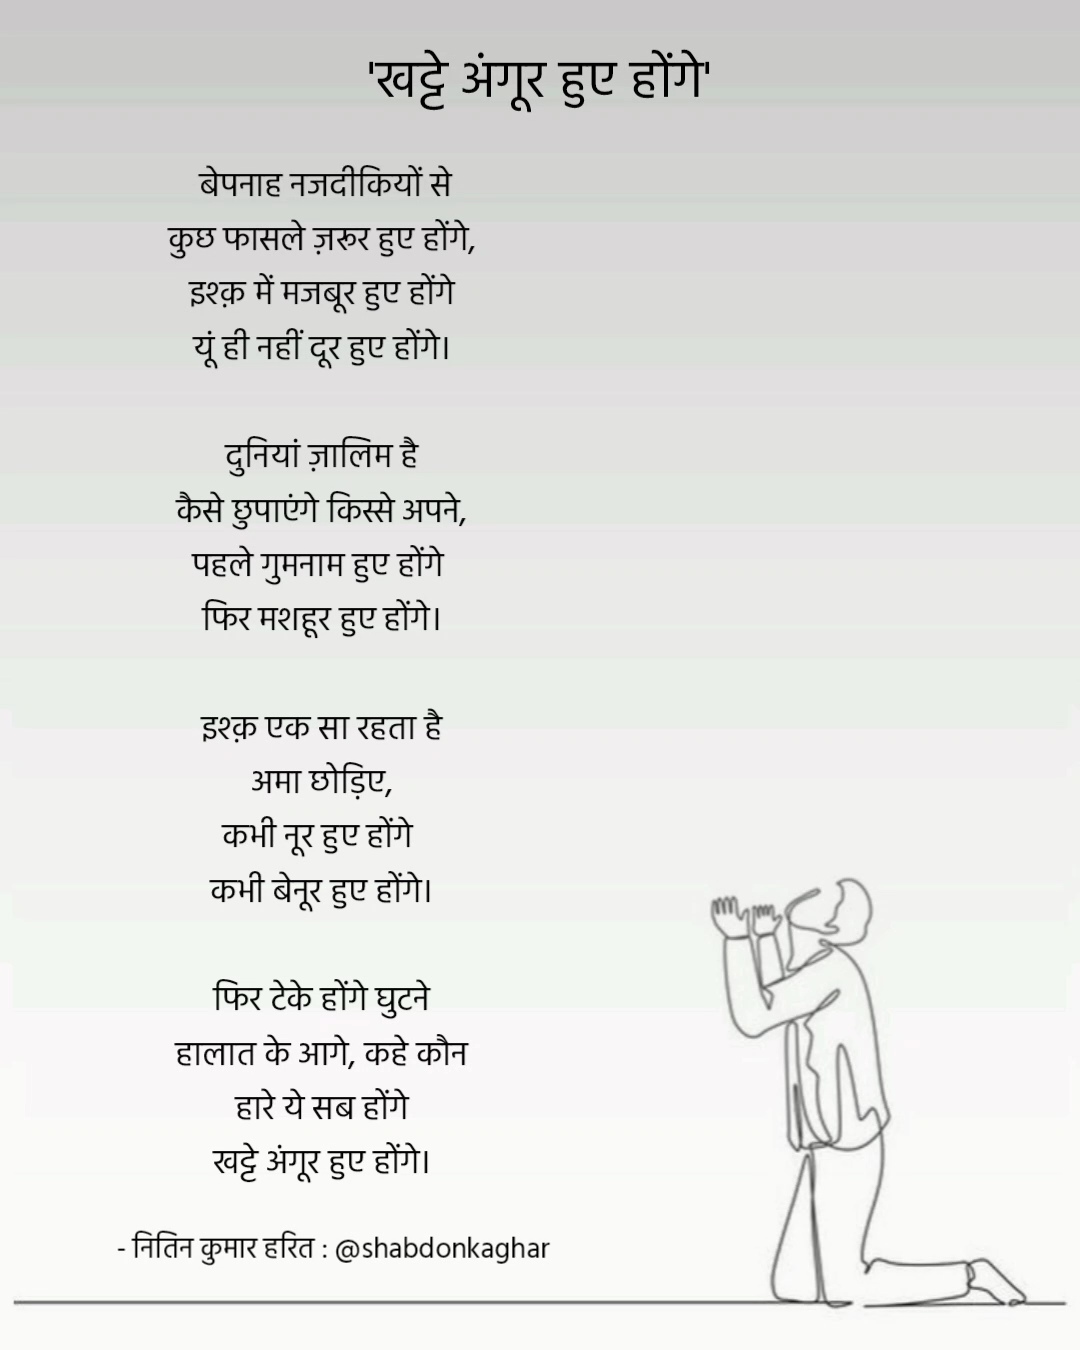 'खट्टे अंगूर हुए होंगे'
बेपनाह नजदीकियों से
कुछ फासले ज़रूर हुए होंगे,
इश्क़ में मजबूर हुए होंगे
यूं ही नहीं दूर हुए होंगे।
दुनियां ज़ालिम है
कैसे छुपाएंगे किस्से अपने,
पहले गुमनाम हुए होंगे
फिर मशहूर हुए होंगे।
इश्क़ एक सा रहता है
अमा छोड़िए,
कभी नूर हुए होंगे
कभी बेनूर हुए होंगे।
फिर टेके होंगे घुटने
हालात के आगे, कहे कौन
हारे ये सब होंगे
खट्टे अंगूर हुए होंगे।
- नितिन कुमार हरित : @shabdonkaghar